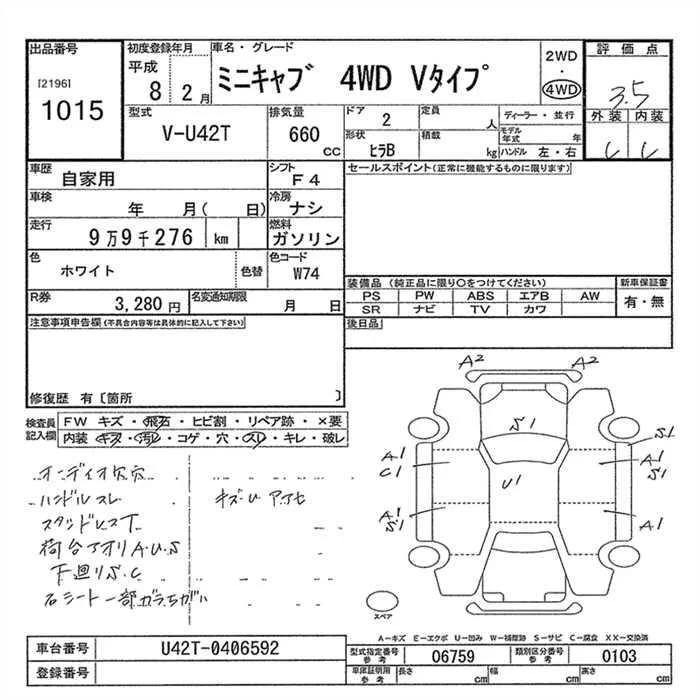 出品番号
[2196]
1015
初度登録年月
平成
8 2月
車名・グレード
ミニキャブ 4WD Vタイプ
2WD
・
4WD
評価点
3.5
外装 内装
型式
V-U42T
排気量
660
cc
ドア
2
形状
ヒラB
定員
人
積載
kg
ディーラー・並行
モデル年式 年
ハンドル 左・右
車歴
自家用
シフト
F4
車検
年 月( 日)
冷房
ナシ
走行
9万9千276 km
燃料
ガソリン
色
ホワイト
色替
色コード
W74
R券
3,280円
名変通知期限
月 日
セールスポイント(正常に機能するものに限ります)
装備品(純正品に限り○をつけてください)
新車保証書
PS PW ABS エアB AW
SR ナビ TV カワ
有・無
後日品
注意事項申告欄(不具合内容等は具体的に記入して下さい)
修復歴 有〔箇所 〕
検査員記入欄
FW キズ・飛石・ヒビ割・リペア跡・×要
内装 キズ・汚レ・コゲ・穴・スレ・キレ・破レ
オーディオ欠穴
ハンドルスレ
キズU アセ
スタッドレスT
荷台アオリA.U.S
下廻りS.C
右シート一部ガラちがい
A2 A2
S1
S1
A1
C1
U1
A1
S1
A1
S1
A1
スペア
A-キズ E-エクボ U-凹み W-補修跡 S-サビ C-腐食 XX-交換済
車台番号
U42T-0406592
登録番号
型式指定番号
参考
06759
類別区分番号
参考
0103
車庫証明用
参考
長さ cm
幅 cm
高さ cm